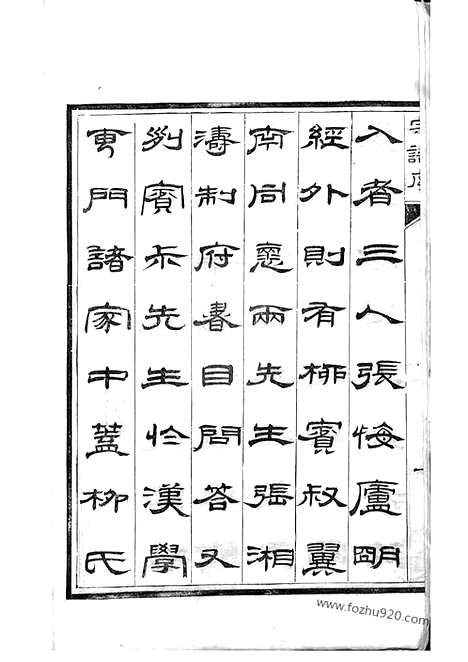 宗譜序
入者三人張悔廬明
經外則有柳賓叔翼
南同褱兩先生張湘
濤制府書目問答又
列賓尗先生於漢學
專門諸家中蓋柳氏
一
www.fozhu920.com